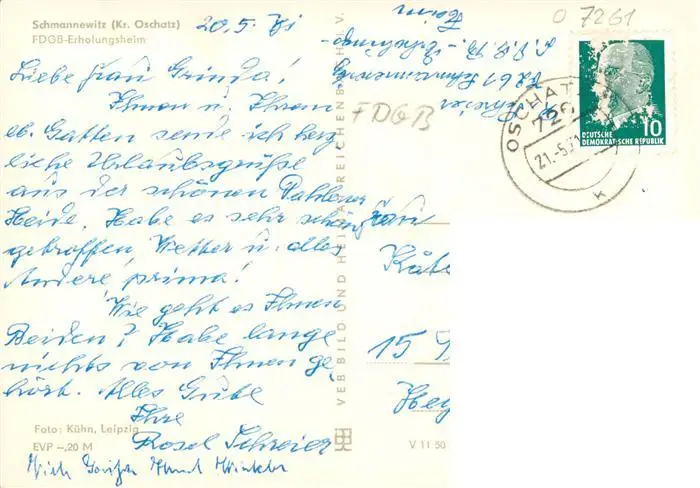 Schmannewitz (Kr. Oschatz)
FDGB-Erholungsheim
20.5.71
Liebe Frau Grinda!
Ihnen u. Ihrem
lb. Gatten sende ich herz
liche Urlaubsgrüße
aus der schönen Dahlener
Heide. Habe es sehr schön
getroffen, Wetter u. alles
Andere prima!
Wie geht es Ihnen
Beiden? Habe lange
nichts von Ihnen ge
hört. Alles Gute
Ihre
Rosel Schreier
Foto: Kühn, Leipzig
EVP –,20 M
VEB BILD UND HEIMAT REICHENBACH i. V.
V 11 50
FDGB
0 7261
Schreier
7261 Schmannewitz
heim
OSCHATZ
726
21.-5.71
K
10
DEUTSCHE
DEMOKRATISCHE REPUBLIK
Frau
Käte
15